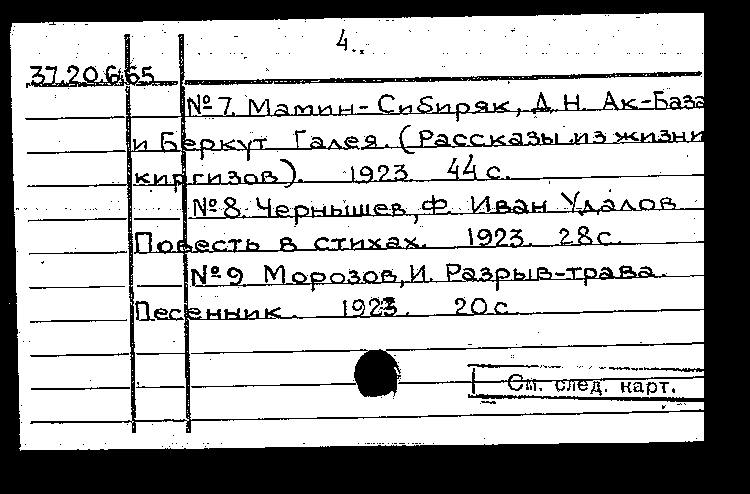 4.
37.20.6.65
№ 7. Мамин-Сибиряк, Д.Н. Ак-База
и Беркут Галея. (Рассказы из жизни
киргизов). 1923. 44 с.
№ 8. Чернышев, Ф. Иван Удалов
Повесть в стихах. 1923. 28 с.
№ 9 Морозов, И. Разрыв-трава.
Песенник. 1923. 20 с.
См. след. карт.